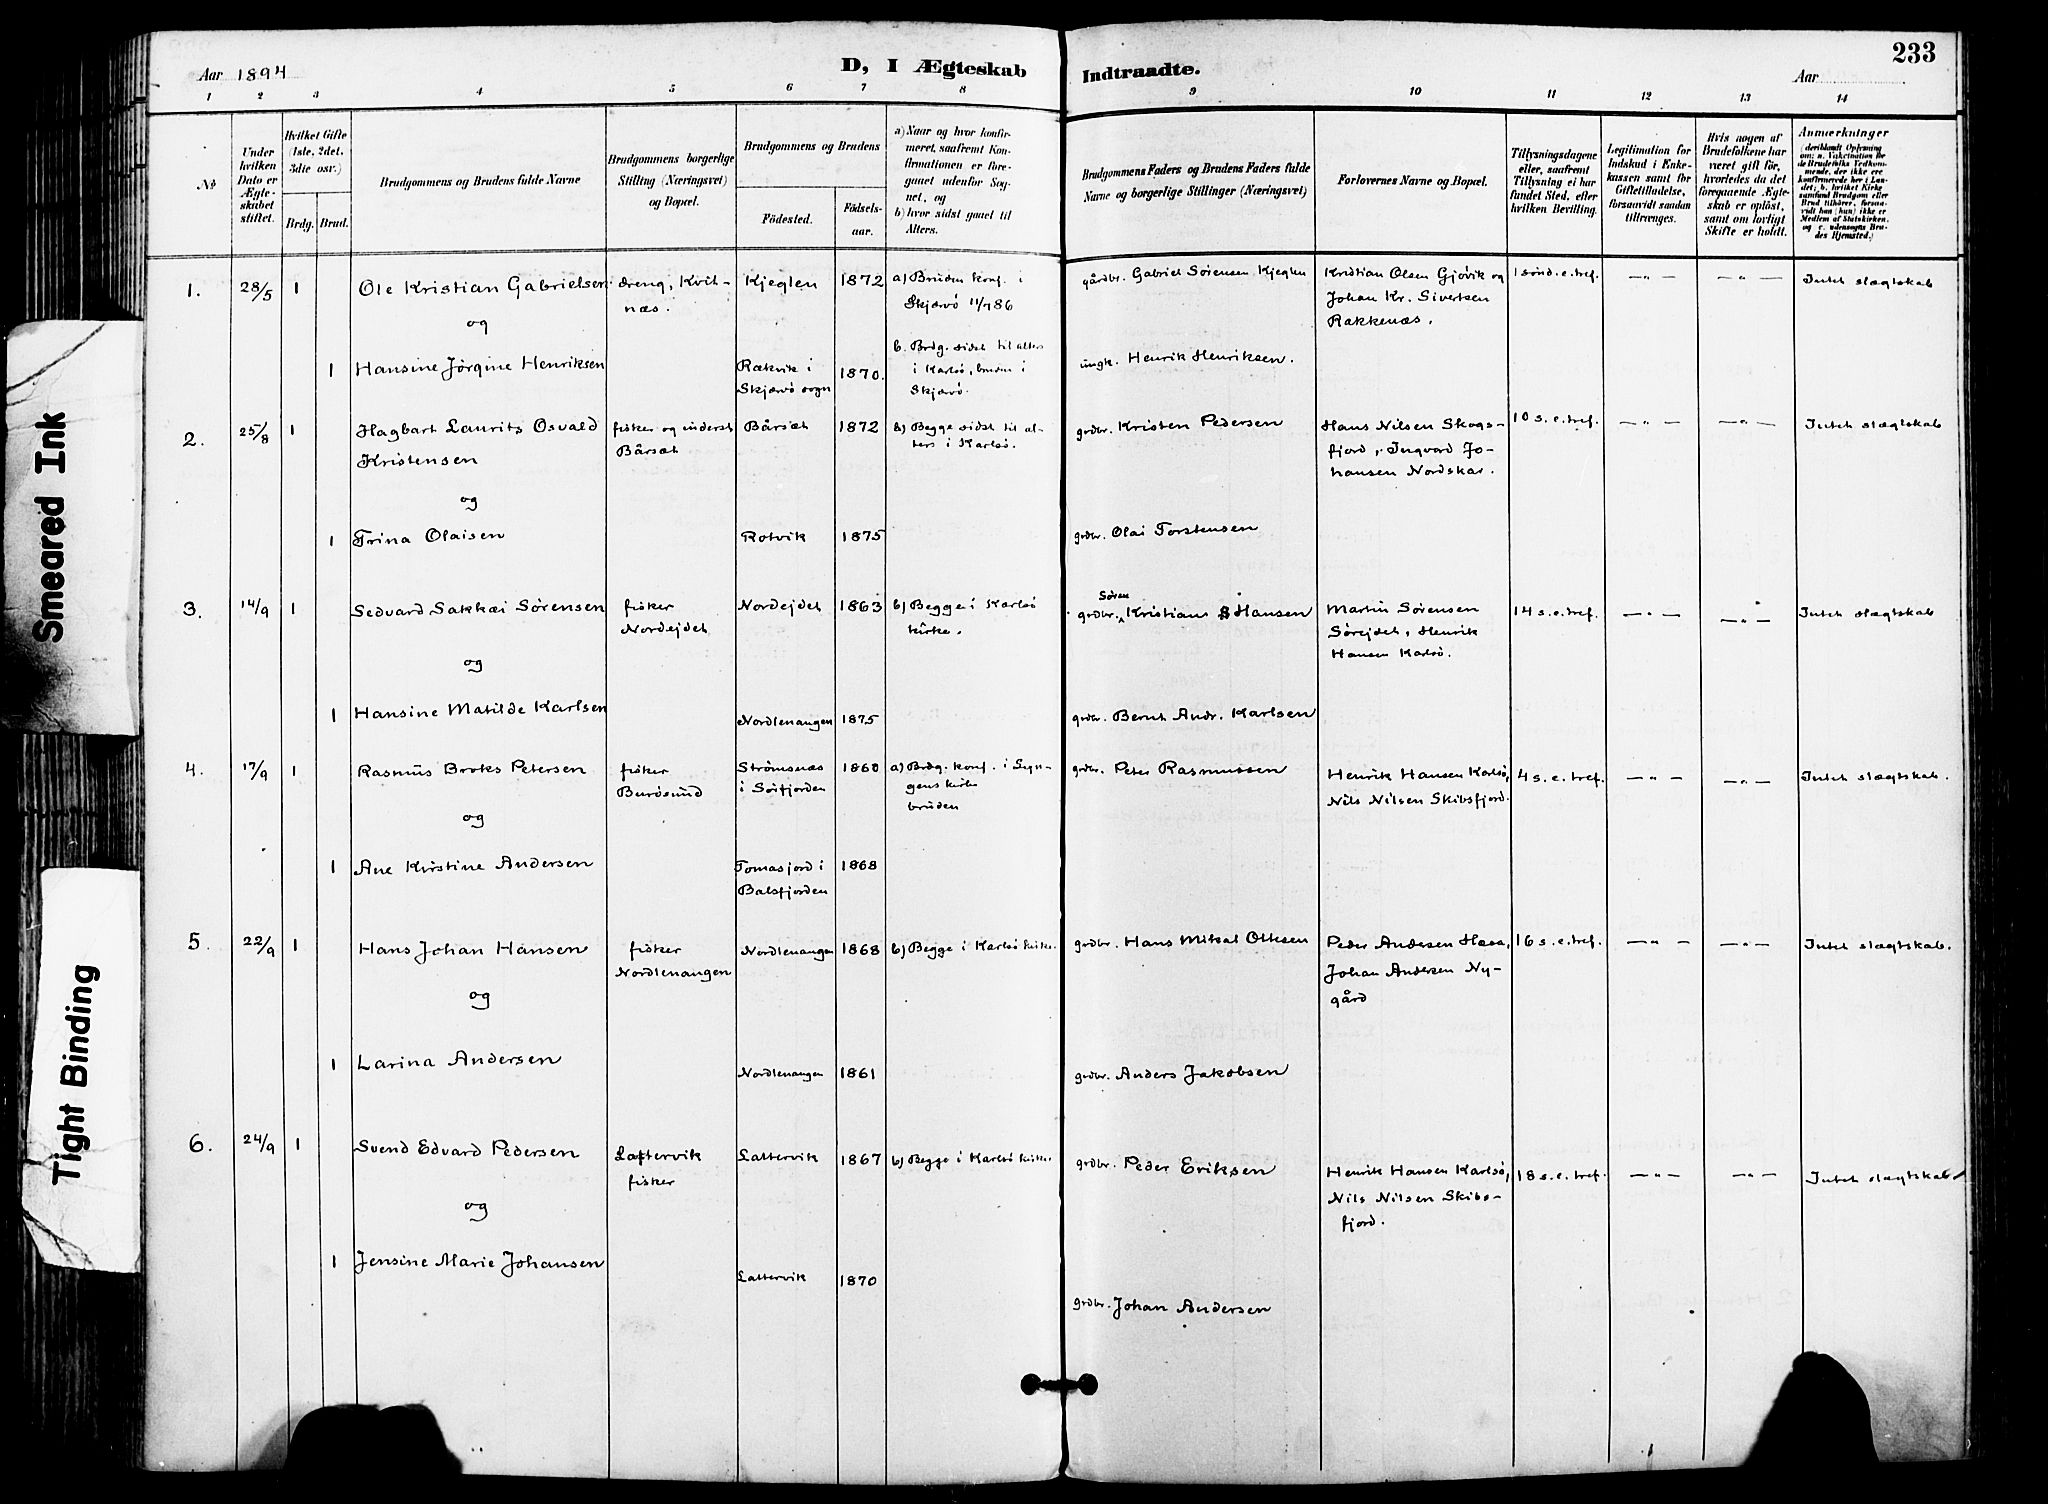 233
Aar 1894
D, I Ægteskab Indtraadte.
Aar
1 2 3 4 5 6 7 8 9 10 11 12 13 14
No
Under hvilken Dato er Ægteskabet stiftet.
Hvilket Gifte (1ste, 2det, 3die osv.)
Brdg. Brud.
Brudgommens og Brudens fulde Navne
Brudgommens borgerlige Stilling (Næringsvei) og Bopæl.
Brudgommens og Brudens
Födested.
Födsels-aar.
a) Naar og hvor konfir-
meret, saafremt Kon-
firmationen er fore-
gaaet udenfor Sog-
net, og
b) hvor sidst gaaet til
Alters.
Brudgommens Faders og Brudens Faders fulde
Navne og borgerlige Stillinger (Næringsvei)
Forlovernes Navne og Bopæl.
Tillysningsdagene
eller, saafremt
Tillysning ei har
fundet Sted, efter
hvilken Bevilling.
Legitimation for
Indskud i Enke-
kassen samt for
Giftetilladelse,
forsaavidt saadan
tiltrænges.
Hvis nogen af
Brudefolkene har
været gift för,
hvorledes da det
foregaaende Ægte-
skab er oplöst,
samt om lovligt
Skifte er holdt.
Anmærkninger
(deriblandt Oplysning
om: a. Vakcination for
de Brudefolks Vedkom-
mende, der ikke ere
konfirmerede her i Lan-
det; b. hvilket Kirke-
samfund Brudgom eller
Brud tilhører, forsaa-
vidt han (hun) ikke er
Medlem af Statskirken,
og c. udensogns Bru-
des Hjemsted.)
1. 28/5 1 Ole Kristian Gabrielsen dreng, Kvit- Kjeglen 1872 a) Bruden konf. i gårdbr. Gabriel Sörensen Kjeglen Kristian Olsen Gjövik og 1 sönd. e. tref. —"— —"— Intet slægtskab
næs. Skjærvö 11/7 86 Johan Kr. Sivertsen
og Rakkenæs.
b. Brdg. sidst til alters
1 Hansine Jörgine Henriksen Rækvik i 1870. i Karlsö, bruden i ungk. Henrik Henriksen.
Skjærvö sogn Skjærvö.
2. 25/8 1 Hagbart Laurits Osvald fisker og inderst Bårsæt 1872 b) Begge sidst til al- grdbr. Kristen Pedersen Hans Nilsen Skogs- 10 s. e. tref. —"— —"— Intet slægtskab
Kristensen Bårsæt ters i Karlsö. fjord, Ingvard Jo-
og hansen Nordskar.
1 Trina Olaisen Rotvik 1875 grdbr. Olai Torstensen
3. 14/9 1 Sedvard Sakkæi Sörensen fisker Nordejdet 1863 b) Begge i Karlsö grdbr. Sören Kristians Hansen Martin Sörensen 14 s. e. tref. —"— —"— Intet slægtskab
Nordejdet kirke. Sörejdet, Henrik
og Hansen Karlsö.
1 Hansine Matilde Karlsen Nordlenangen 1875 grdbr. Bernt Andr. Karlsen
4. 17/9 1 Rasmus Broks Petersen fisker Strömsnæs 1860 a) Brdg. konf. i Lyn- grdbr. Peter Rasmussen Henrik Hansen Karlsö, 4 s. e. tref. —"— —"— Intet slægtskab.
Burösund i Sörfjorden gens kirke Nils Nilsen Skibsfjord.
og bruden
1 Ane Kirstine Andersen Tomasjord i 1868
Balsfjorden
5. 22/9 1 Hans Johan Hansen fisker Nordlenangen 1868 b) Begge i Karlsö kirke. grdbr. Hans Mikal Olksen Peder Andersen Hessa, 16 s. e. tref. —"— —"— Intet slægtskab.
Nordlenangen Johan Andersen Ny-
og gård
1 Larina Andersen Nordlenangen 1861 grdbr. Anders Jakobsen
6. 24/9 1 Svend Edvard Pedersen Lattervik Lattervik 1867 b) Begge i Karlsö kirke grdbr. Peder Eriksen Henrik Hansen Karlsö, 18 s. e. tref. —"— —"— Intet slægtskab
fisker Nils Nilsen Skibs-
og fjord.
1 Jensine Marie Johansen Lattervik 1870
grdbr. Johan Andersen
Smeared Ink
Tight Binding